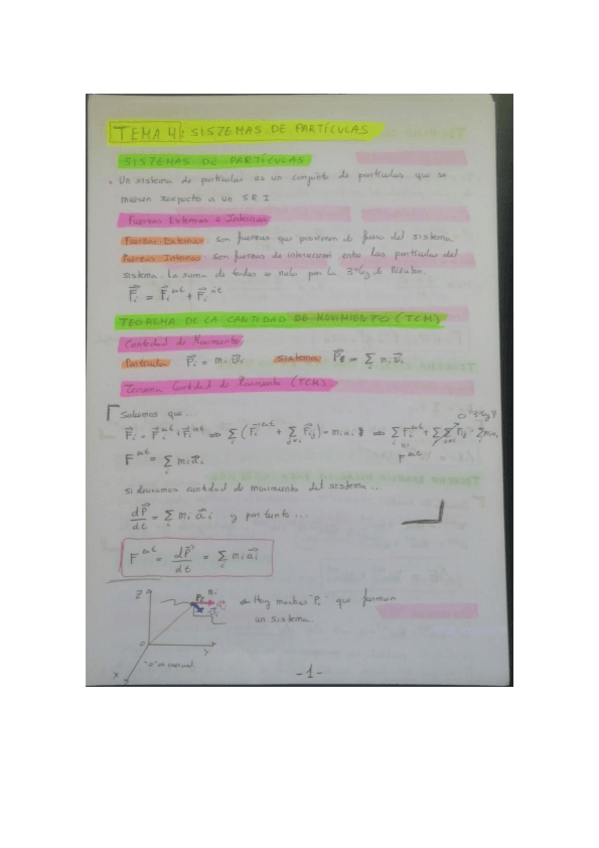 TEMA 4: SISTEMAS DE PARTÍCULAS
SISTEMAS DE PARTÍCULAS
Un sistema de partículas es un conjunto de partículas que se
mueven respecto a un S.R.I
Fuerzas Externas e Internas
Fuerzas Externas: son fuerzas que provienen de fuera del sistema
Fuerzas Internas: son fuerzas de interacción entre las partículas del
sistema. La suma de todas es nula por la 3ª ley de Newton.
F⃗ᵢ = F⃗ᵢᵉˣᵗ + F⃗ᵢⁱⁿᵗ
TEOREMA DE LA CANTIDAD DE MOVIMIENTO (TCM)
Cantidad de Movimiento
Partícula P⃗ᵢ = mᵢ v⃗ᵢ sistema = Σᵢ mᵢ v⃗ᵢ
Teorema Cantidad de Movimiento (TCM)
Sabemos que...
F⃗ᵢ = F⃗ᵢᵉˣᵗ + F⃗ᵢⁱⁿᵗ ⇒ Σᵢ (F⃗ᵢᵉˣᵗ + Σ F⃗ᵢⱼ) = mᵢ aᵢ ⇒ Σᵢ F⃗ᵢᵉˣᵗ + ΣΣ F⃗ᵢⱼ = Σ mᵢ aᵢ
Fᵉˣᵗ = Σᵢ mᵢ a⃗ᵢ Fᵉˣᵗ
si derivamos cantidad de movimiento del sistema...
dP⃗/dt = Σᵢ mᵢ a⃗ᵢ y por tanto...
Fᵉˣᵗ = dP⃗/dt = Σᵢ mᵢ a⃗ᵢ
Z Pᵢ mᵢ Hay muchas "Pᵢ" que forman
un sistema.
O Y
X "O" es inercial
-1-